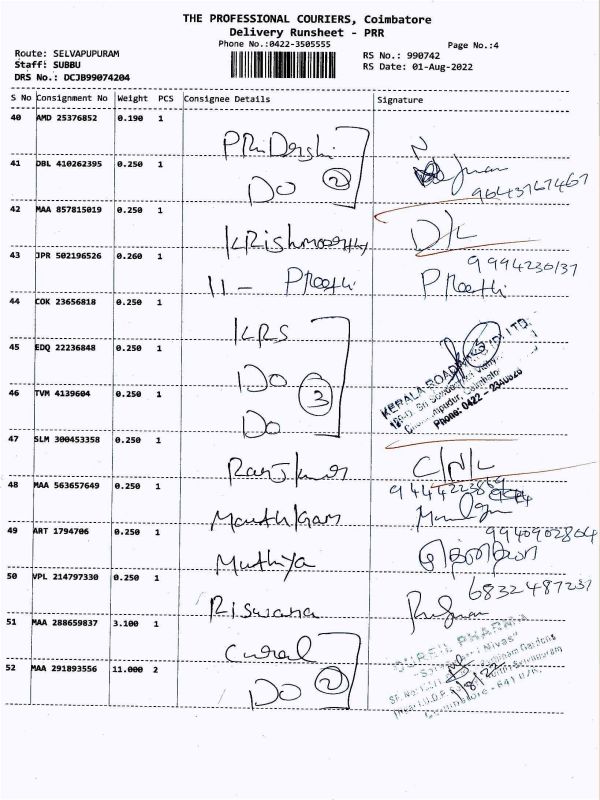 THE PROFESSIONAL COURIERS, Coimbatore
Delivery Runsheet - PRR
Phone No.:0422-3505555
Page No.:4
Route: SELVAPUPURAM
Staff: SUBBU
DRS No.: DCJB99074204
RS No.: 990742
RS Date: 01-Aug-2022
S No Consignment No Weight PCS Consignee Details Signature
40 AMD 25376852 0.190 1
PRiDarshi
N
41 DBL 410262395 0.250 1
DO 2
9643767467
42 MAA 857815019 0.250 1
KRishmoorthy D/L
43 JPR 502196526 0.260 1
9994230137
11 - Preethi Preethi
44 COK 23656818 0.250 1
KRS
45 EDQ 22236848 0.250 1
DO 3
KERALA ROAD
46 TVM 4139604 0.250 1
DO
Phone: 0422 - 2340626
47 SLM 300453358 0.250 1
C/N/L
48 MAA 563657649 0.250 1
49 ART 1794706 0.250 1
9940902864
Muthya
50 VPL 214797330 0.250 1
6832487237
Riswana
51 MAA 288659837 3.100 1
Cural
CUREIL PHARMA
Nivas"
52 MAA 291893556 11.000 2
DO 2
1/8/22